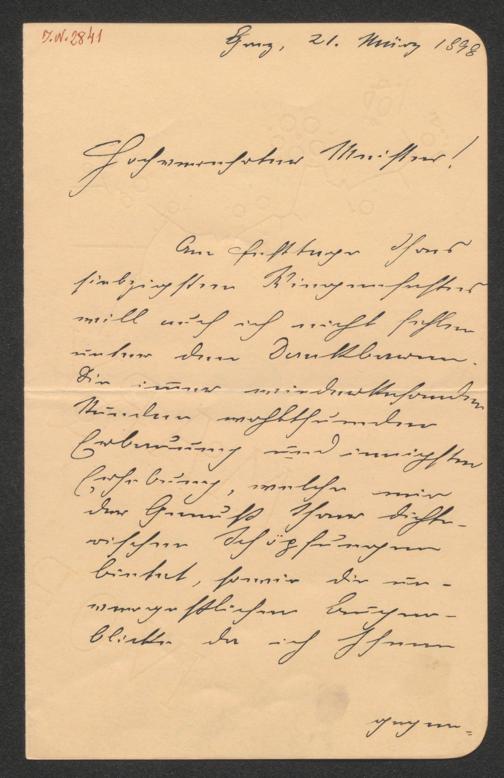 I.N. 2841
Graz, 21. März 1898
Hochverehrter Meister!
Am Festtage Ihres
siebzigsten Wiegenfestes
will auch ich nicht fehlen
unter den Dankbaren.
Die immer wiederkehrenden
Stunden wohlthuender
Erbauung und innigster
Erhebung, welche mir
der Genuß Ihrer dichte-
rischen Schöpfungen
bietet, sowie die un-
vergeßlichen Augen-
blicke da ich Ihnen
gegen-